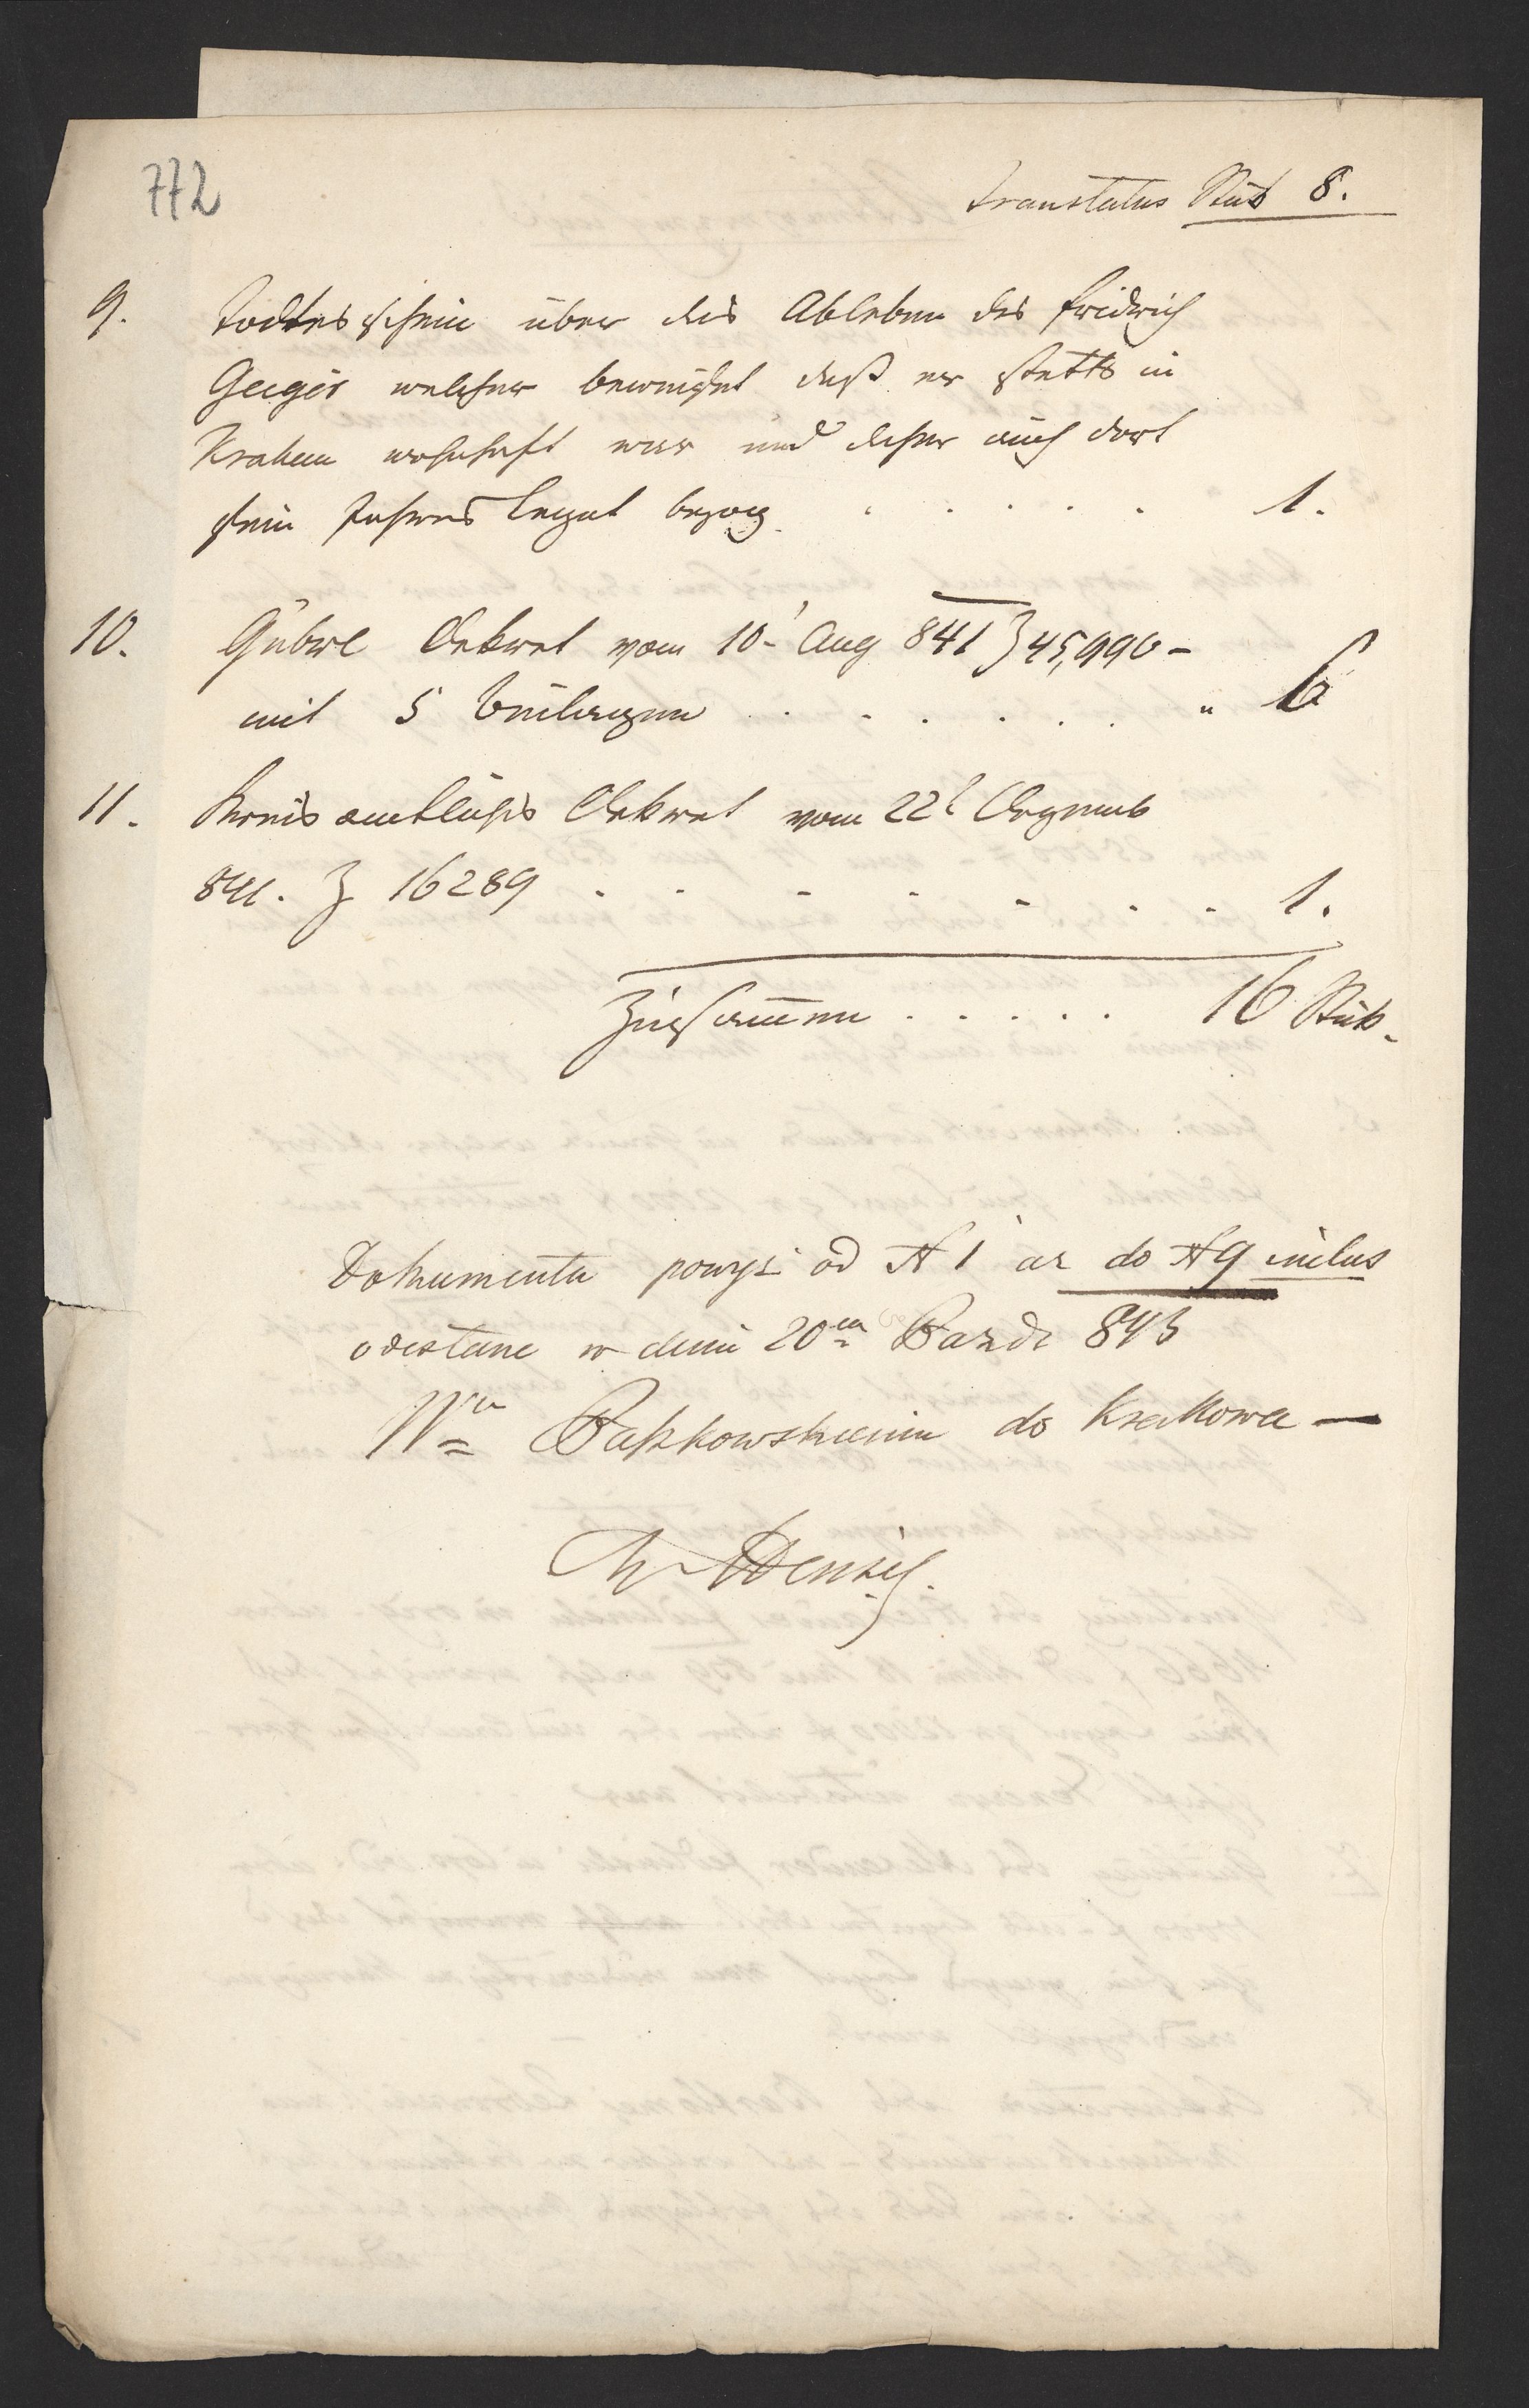 772
Transtatus Stük 8.
9. Todtesschein über das Ableben des Fridrich
Geiger welcher beweiset daß er stetts in
Krakau wohnhaft war und daher auch dort
sein Legat bezog . . . . . 1.
10. Gubral Dekret vom 10t Aug 841 Z 45,990 -
mit 5 Beilagen . . . . . . " 6
11. Kreisamtliches Dekret vom 22t Dezemb
841. Z 16289 - - - - - - - 1.
Zusammen . . . . . 16 Stük.
Dokumenta powyż od N 1 az do N 9 inclus
odesłane w dniu 20m Pazdz 843
Wu do Krakowa —